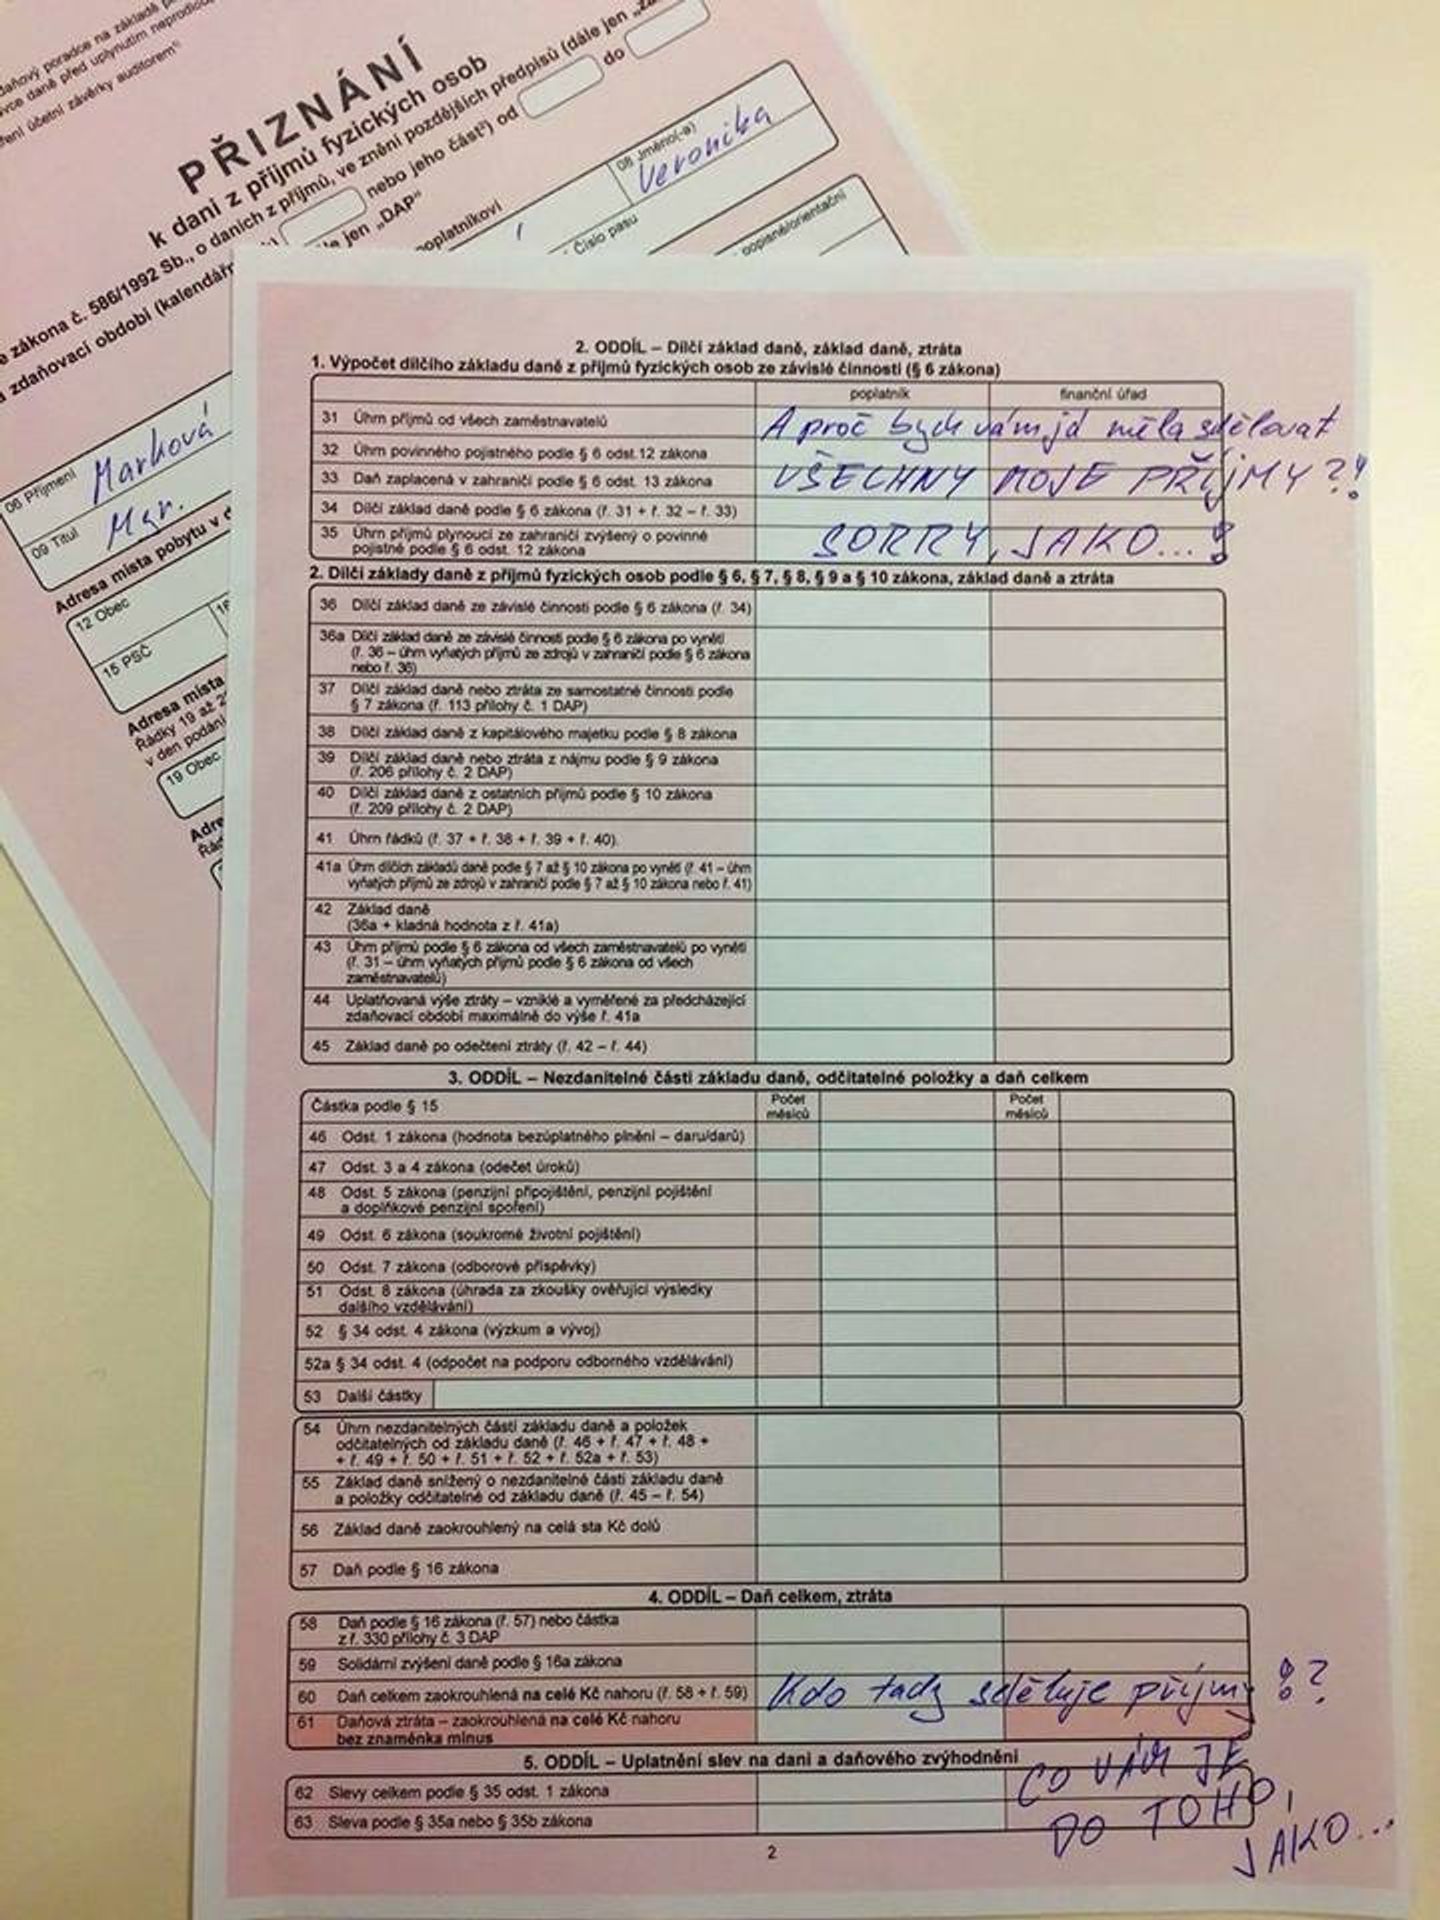 daňový poradce na základě
správce daně před uplynutím neprodlou
ření účetní závěrky auditorem
PŘIZNÁNÍ
k dani z příjmů fyzických osob
zákona č. 586/1992 Sb., o daních z příjmů, ve znění pozdějších předpisů (dále jen „
zdaňovací období (kalendářn
nebo jeho část) od
do
jen „DAP“
poplatníkovi
08 Jméno(-a)
Veronika
Číslo pasu
popisné/orientační
06 Příjmení
Marková
09 Titul
Mgr.
Adresa místa pobytu v
12 Obec
15 PSČ
Adresa místa
Řádky 19 až 2
v den podání
19 Obec
Adre
Řád
2. ODDÍL – Dílčí základ daně, základ daně, ztráta
1. Výpočet dílčího základu daně z příjmů fyzických osob ze závislé činnosti (§ 6 zákona)
poplatník finanční úřad
31 Úhrn příjmů od všech zaměstnavatelů
A proč bych vám já měla sdělovat
32 Úhrn povinného pojistného podle § 6 odst.12 zákona
33 Daň zaplacená v zahraničí podle § 6 odst. 13 zákona
VŠECHNY MOJE PŘÍJMY?!
34 Dílčí základ daně podle § 6 zákona (ř. 31 + ř. 32 – ř. 33)
35 Úhrn příjmů plynoucí ze zahraničí zvýšený o povinné
pojistné podle § 6 odst. 12 zákona
SORRY, JAKO...!
2. Dílčí základy daně z příjmů fyzických osob podle § 6, § 7, § 8, § 9 a § 10 zákona, základ daně a ztráta
36 Dílčí základ daně ze závislé činnosti podle § 6 zákona (ř. 34)
36a Dílčí základ daně ze závislé činnosti podle § 6 zákona po vynětí
(ř. 36 – úhrn vyňatých příjmů ze zdrojů v zahraničí podle § 6 zákona
nebo ř. 36)
37 Dílčí základ daně nebo ztráta ze samostatné činnosti podle
§ 7 zákona (ř. 113 přílohy č. 1 DAP)
38 Dílčí základ daně z kapitálového majetku podle § 8 zákona
39 Dílčí základ daně nebo ztráta z nájmu podle § 9 zákona
(ř. 206 přílohy č. 2 DAP)
40 Dílčí základ daně z ostatních příjmů podle § 10 zákona
(ř. 209 přílohy č. 2 DAP)
41 Úhrn řádků (ř. 37 + ř. 38 + ř. 39 + ř. 40).
41a Úhrn dílčích základů daně podle § 7 až § 10 zákona po vynětí (ř. 41 – úhrn
vyňatých příjmů ze zdrojů v zahraničí podle § 7 až § 10 zákona nebo ř. 41)
42 Základ daně
(36a + kladná hodnota z ř. 41a)
43 Úhrn příjmů podle § 6 zákona od všech zaměstnavatelů po vynětí
(ř. 31 – úhrn vyňatých příjmů podle § 6 zákona od všech
zaměstnavatelů)
44 Uplatňovaná výše ztráty – vzniklé a vyměřené za předcházející
zdaňovací období maximálně do výše ř. 41a
45 Základ daně po odečtení ztráty (ř. 42 – ř. 44)
3. ODDÍL – Nezdanitelné části základu daně, odčitatelné položky a daň celkem
Částka podle § 15
Počet měsíců
Počet měsíců
46 Odst. 1 zákona (hodnota bezúplatného plnění – daru/darů)
47 Odst. 3 a 4 zákona (odečet úroků)
48 Odst. 5 zákona (penzijní připojištění, penzijní pojištění
a doplňkové penzijní spoření)
49 Odst. 6 zákona (soukromé životní pojištění)
50 Odst. 7 zákona (odborové příspěvky)
51 Odst. 8 zákona (úhrada za zkoušky ověřující výsledky
dalšího vzdělávání)
52 § 34 odst. 4 zákona (výzkum a vývoj)
52a § 34 odst. 4 (odpočet na podporu odborného vzdělávání)
53 Další částky
54 Úhrn nezdanitelných částí základu daně a položek
odčitatelných od základu daně (ř. 46 + ř. 47 + ř. 48 +
+ ř. 49 + ř. 50 + ř. 51 + ř. 52 + ř. 52a + ř. 53)
55 Základ daně snížený o nezdanitelné části základu daně
a položky odčitatelné od základu daně (ř. 45 – ř. 54)
56 Základ daně zaokrouhlený na celá sta Kč dolů
57 Daň podle § 16 zákona
4. ODDÍL – Daň celkem, ztráta
58 Daň podle § 16 zákona (ř. 57) nebo částka
z ř. 330 přílohy č. 3 DAP
59 Solidární zvýšení daně podle § 16a zákona
60 Daň celkem zaokrouhlená na celé Kč nahoru (ř. 58 + ř. 59)
Kdo tady sděluje příjmy!?
61 Daňová ztráta – zaokrouhlená na celé Kč nahoru
bez znaménka minus
5. ODDÍL – Uplatnění slev na dani a daňového zvýhodnění
62 Slevy celkem podle § 35 odst. 1 zákona
63 Sleva podle § 35a nebo § 35b zákona
CO VÁM JE
DO TOHO,
JAKO...
2